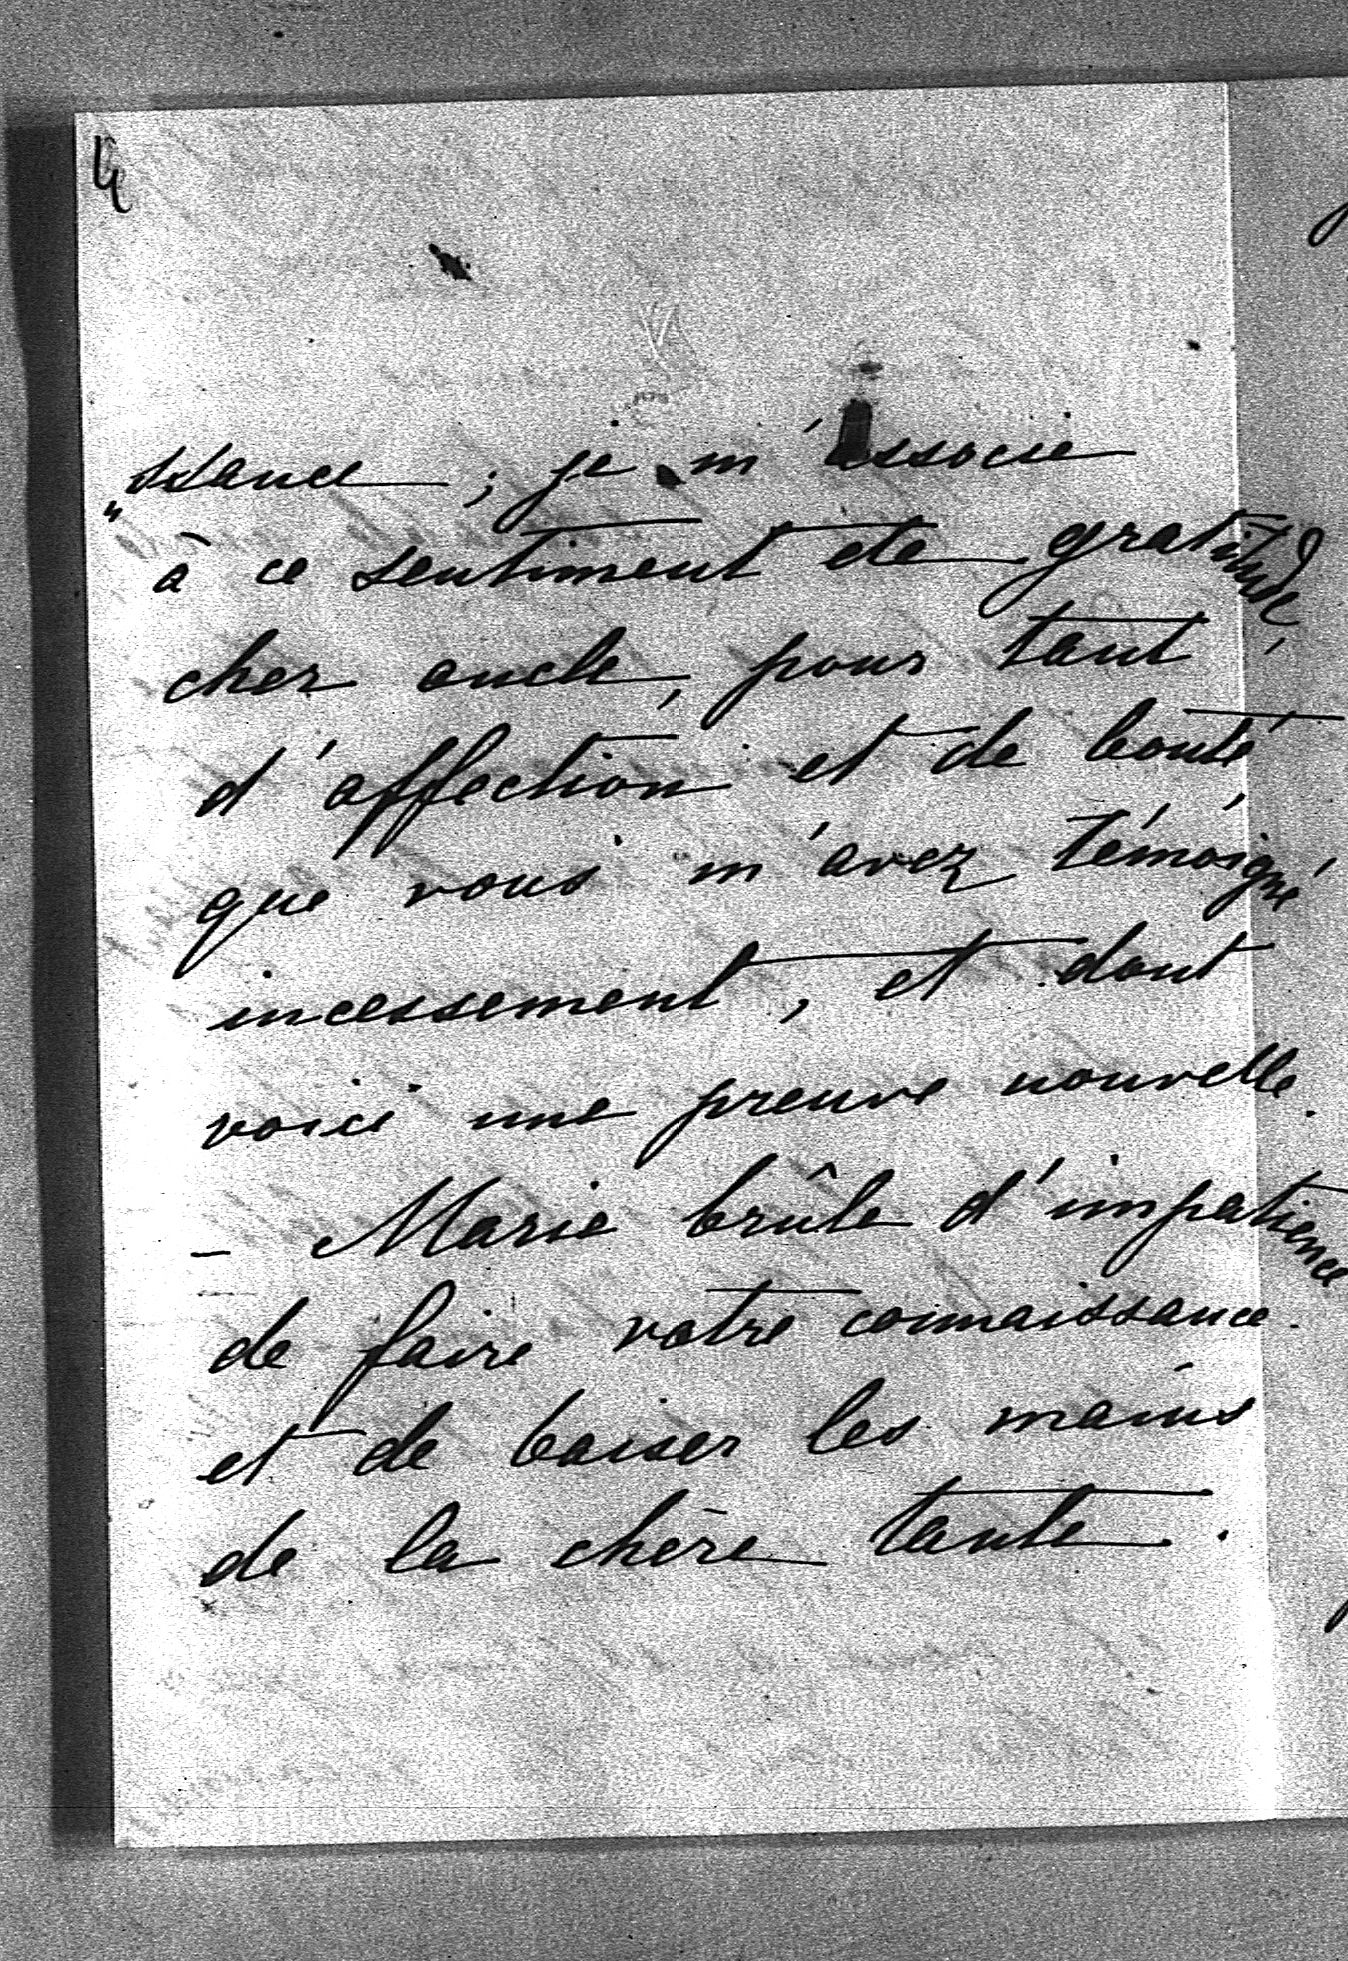 4
"ssance ; je m'associe
à ce sentiment de gratitude,
cher oncle, pour tant
d'affection et de bonté
que vous m'avez témoigné
incessement, et dont
voici une preuve nouvelle.
- Marie brûle d'impatience
de faire votre connaissance.
et de baiser les mains
de la chère tante.